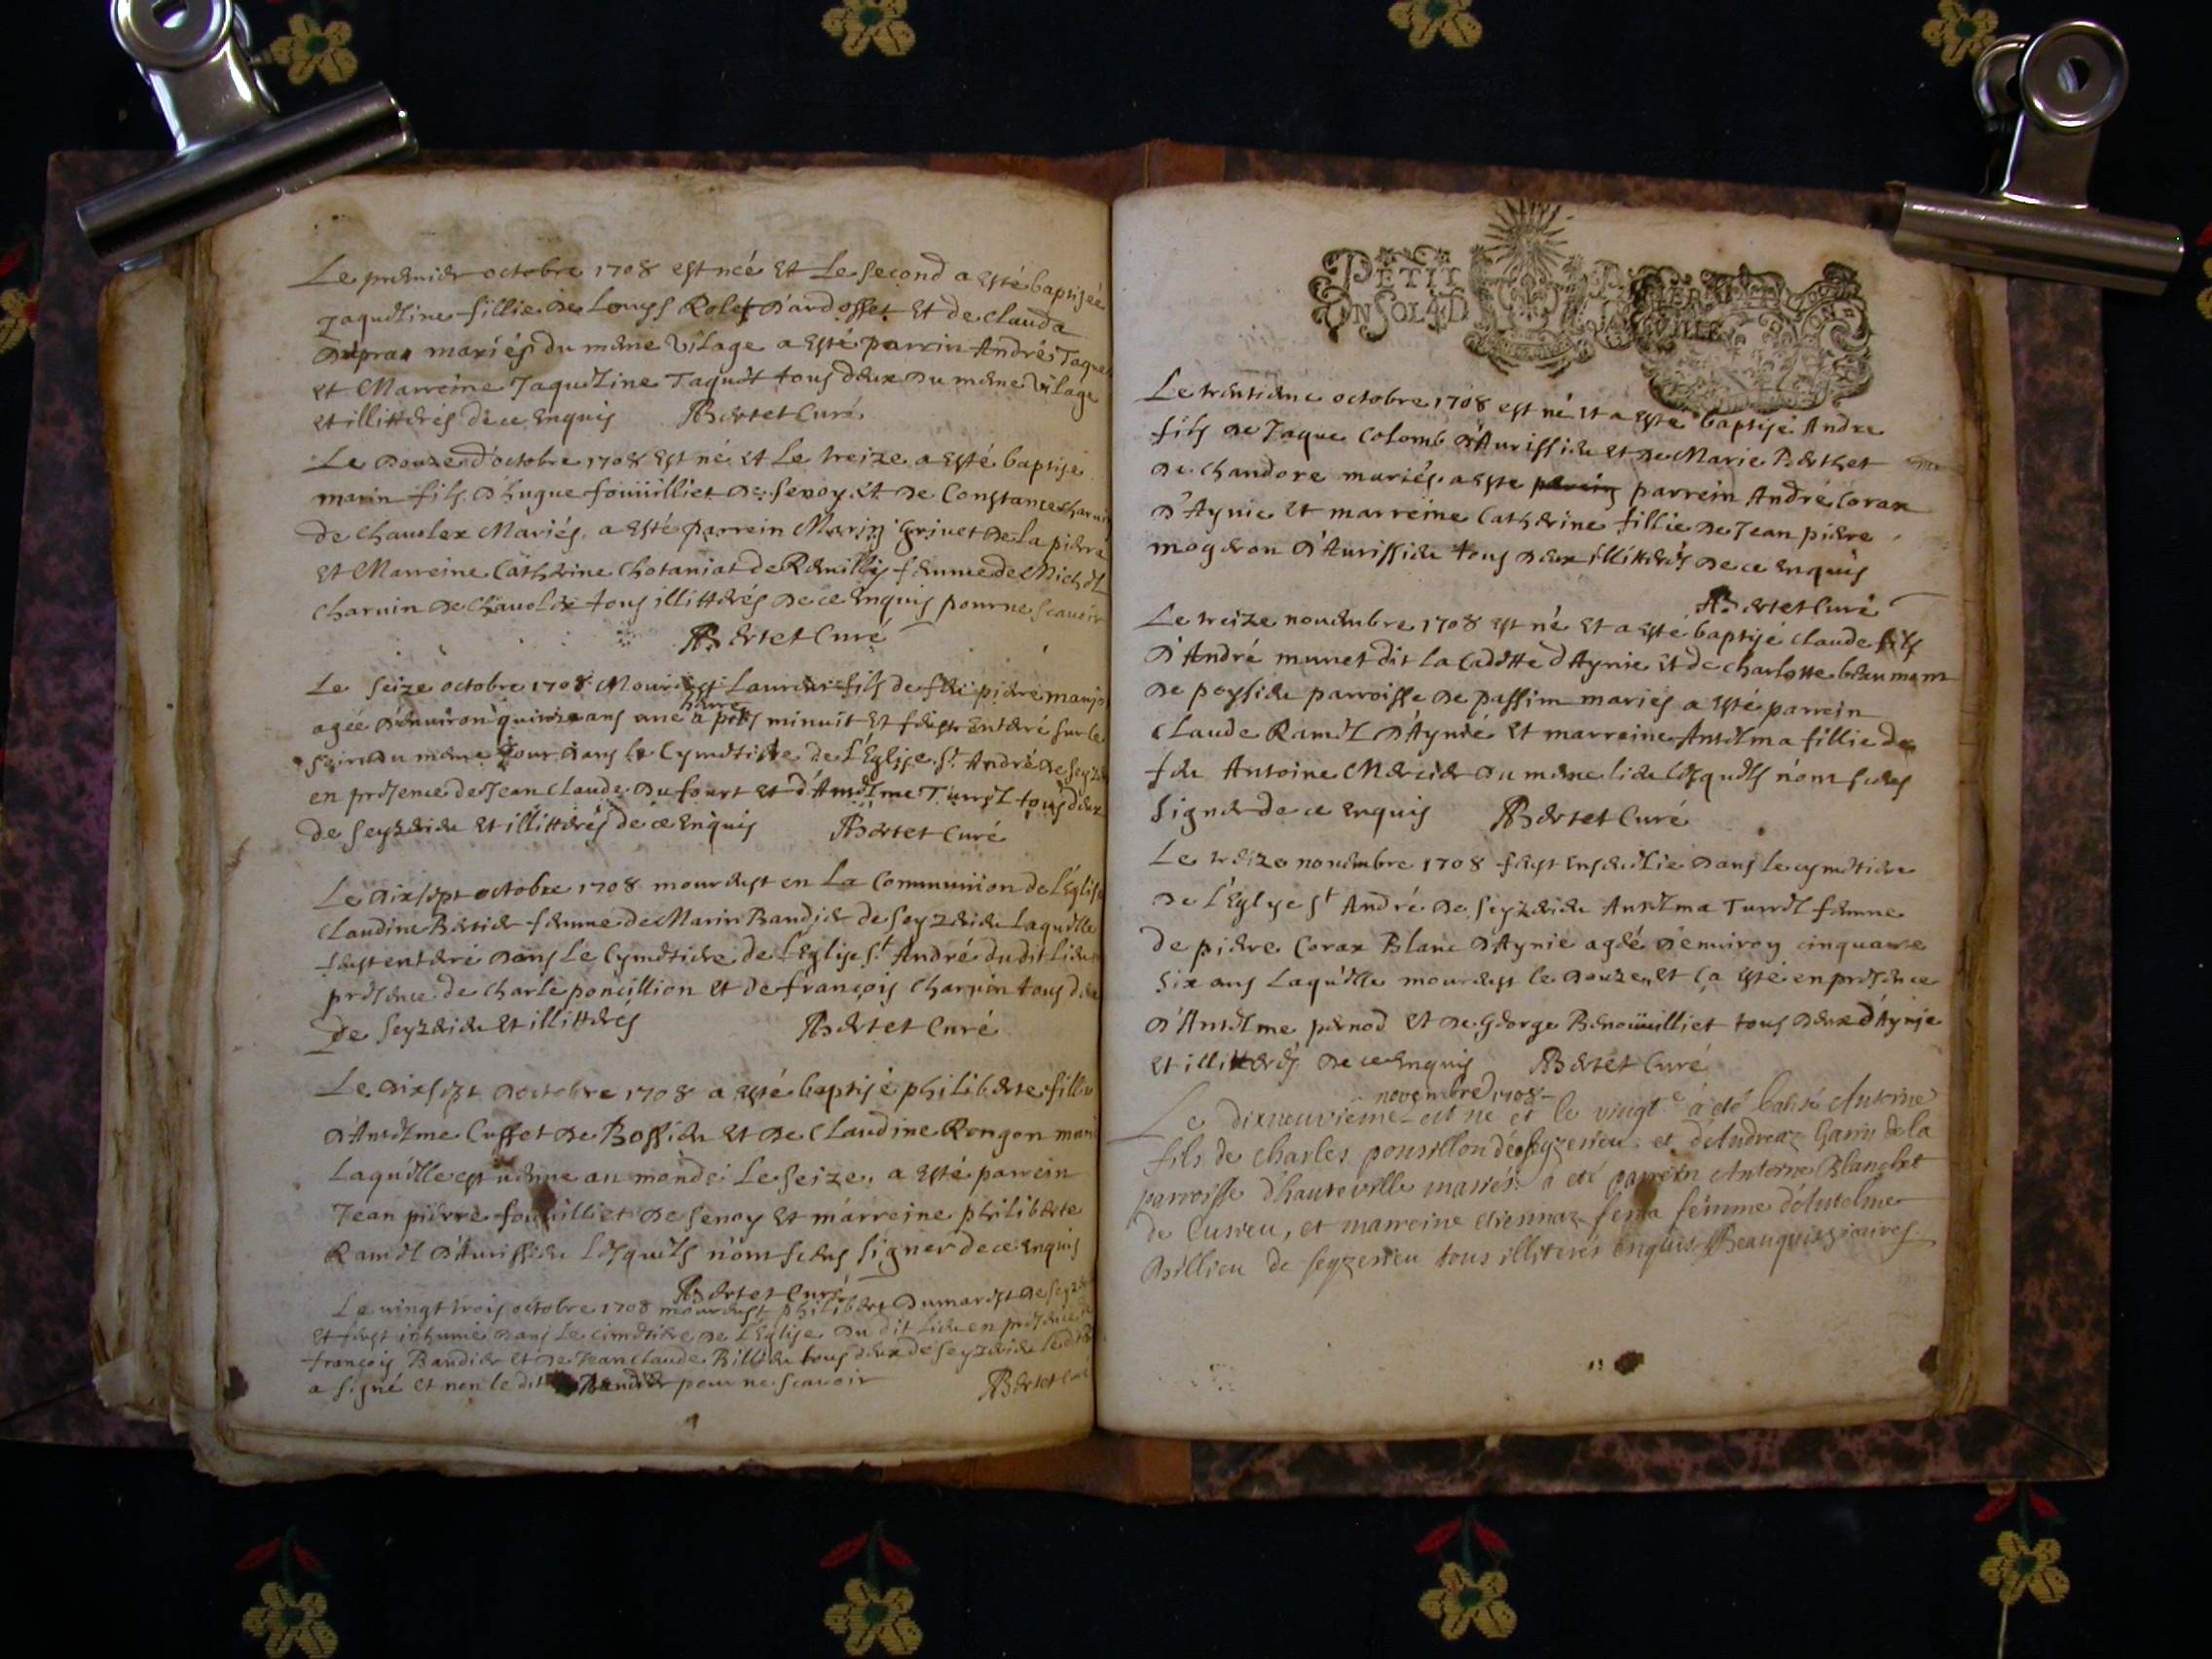 Le premier octobre 1708 est née et Le second a esté baptisée
Jaqueline fillie de Louys Rolet d'ardosset et de clauda
mariés du même vilage a esté parrin André Jaque
et Marreine Jaqueline Jaquet tous deux du même vilage
et illitterés de ce enquis ABertet Curé
Le douze d'octobre 1708 est né et Le treize a esté baptisé
marin fils d'hugue fouuilliet de senoy et de Constance charuin
de chauolex Mariés. a esté parrein Marin Griuet de La pierre
et Marreine Catherine Chotaniat de Remilly femme de Michel
charuin de chauolex tous illitterés de ce enquis pour ne scauoir
ABertet Curé
Le seize octobre 1708 Mourust fils de feu pierre
agée d'enuiron ans une heure a prés minuit et feust enterré sur le
soir du même jour dans le Cymetiere de L'Eglise St André de
en presence de Jean claude dufourt et d'Antelme Turrel tous deux
de seyzerieu et illitterés de ce enquis ABertet Curé
Le dixsept octobre 1708 mourust en La Communion de L'Eglise
claudine Bertier femme de Marin Baudier de seyzerieu Laquelle
feust enterré dans Le Cymetiere de L'Eglise St André du dit Lieu
presence de charle poncillion et de françois charuin tous deux
de seyzerieu et illitterés ABertet Curé
Le dixsept doctobre 1708 a esté baptisé philiberte fillie
d'Antelme Cuffet de Bossieu et de Claudine Rongon
Laquelle est uenue au monde Le seize, a esté parrein
Jean pierre fouuilliet de senoy et marreine philiberte
Ramel d'Aurissieu Lesquels n'ont sceus signer de ce enquis
ABertet Curé
Le uingt trois octobre 1708 mourust philibert Dumarest de
et feust inhumé dans Le cimetiere de L'Eglise du dit Lieu en presence
françois Baudier et de Jean claude Billieu tous deux de seyzerieu le
a signé et non le dit Baudier pour ne scauoir ABertet Curé
PETIT
ONSOL 4 D
Le trentieme octobre 1708 est né et a esté baptisé Andre
fils de Jaque Colomb d'Aurissieu et de Marie Berthet
de chandore mariés. a este parrein André Corax
d'Aynie et marreine Catherine fillie de Jean pierre
mogeron d'Aurissieu tous deux illitterés de ce enquis
ABertet Curé
Le treize nouembre 1708 est né et a esté baptisé claude fils
d'André munet dit La Cadette d'Aynie et de charlotte beaumont
de poysieu parroisse de passim mariés a esté parrein
Claude Ramel d'Aynié et marreine Antelma fillie de
feu Antoine Mercier du même lieu Lesquels n'ont sceus
signer de ce enquis ABertet Curé
Le treize nouembre 1708 feust enseuelie dans le cymetiere
de L'Eglyse St André de seyzerieu Antelma Turrel femme
de pierre Corax Blanc d'Aynie agée d'enuiron cinquante
six ans Laquelle mourust le douze, et ça esté en presence
d'Antelme pernod et de George Benouuilliet tous deux d'Aynie
et illitterés de ce enquis ABertet Curé
novembre 1708
Le dixneuvieme est né et le vingt e a eté batisé Antoine
fils de Charles ponsillon de seyzerieu et d'Andreaz Garin de la
parroisse d'hauteville mariés. a eté parrein Antoine Blanchet
de Cusieu, et marreine etiennaz femme d'Antelme
Billieu de seyzerieu tous illiterés enquis